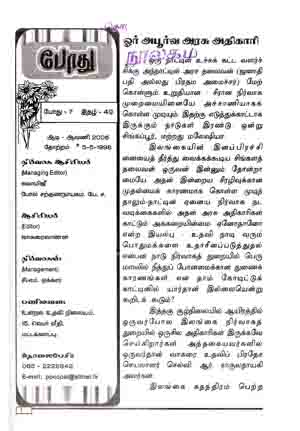 போது
போது - 7 இதழ் - 49
ஆடி - ஆவணி 2006
தோற்றம் : 5-5-1998
நிர்வாக ஆசிரியர்
(Managing Editor)
ஆசிரியர்
(Editor)
வாகரைவாணன்
நிர்வாகம்
(Management)
பணிமனை
தொலைபேசி
065 - 2222642
E-mail:
நூலகம்
ஓர் அபூர்வ அரசு அதிகாரி
ஒரு நாட்டின் உச்சக் கட்ட வளர்ச்
சிக்கு அந்நாட்டின் அரச தலைவன் (ஜனாதி
பதி அல்லது பிரதம அமைச்சர்) மேற்
கொள்ளும் உறுதியான - சீரான நிர்வாக
முறைமையினையே அச்சாணியாகக்
கொள்ள முடியும். இதற்கு எடுத்துக்காட்டாக
இருக்கும் நாடுகள் இரண்டு ஒன்று
சிங்கப்பூர், மற்றது மலேசியா
இலங்கையின் இனப்பிரச்சி
னையைத் தீர்த்து வைக்கக்கூடிய சிங்களத்
தலைவன் ஒருவன் இன்னும் தோன்றா
மையே அதன் இன்றைய சீரழிவுக்கான
முதன்மைக் காரணமாக கொள்ள முடியு
தாலும்-நாட்டின் ஏனைய நிர்வாக நட
வடிக்கைகளில் அதன் அரசு அதிகாரிகள்
காட்டும் அக்கறையின்மை ஏனோதானோ
என்ற இயல்பு - உதவி நாடி வரும்
பொதுமக்களை உதாசீனப்படுத்துதல்
என்பன நாடு நிர்வாகத் துறையில் பெரு
மளவில் பின்தங்கிப் போனமைக்கான துணைக்
காரணங்கள் என நாம் கோடிட்டுக்
காட்டினில் யார்தான் இல்லையென்று
கூறிடக் கூடும்?
இத்தகு சூழ்நிலையில் ஆயிரத்தில்
ஒருவர்போல இலங்கை நிர்வாகத்
துறையில் ஒருசில அதிகாரிகள் இருக்கவே
செய்கிறார்கள் அத்தகையவர்களில்
ஒருவர்தான் வாகரை உதவிப் பிரதேச
செயலாளர் செல்வி ஆர். ராகுலநாயகி
அவர்கள்.
இலங்கை சுதந்திரம் பெற்ற